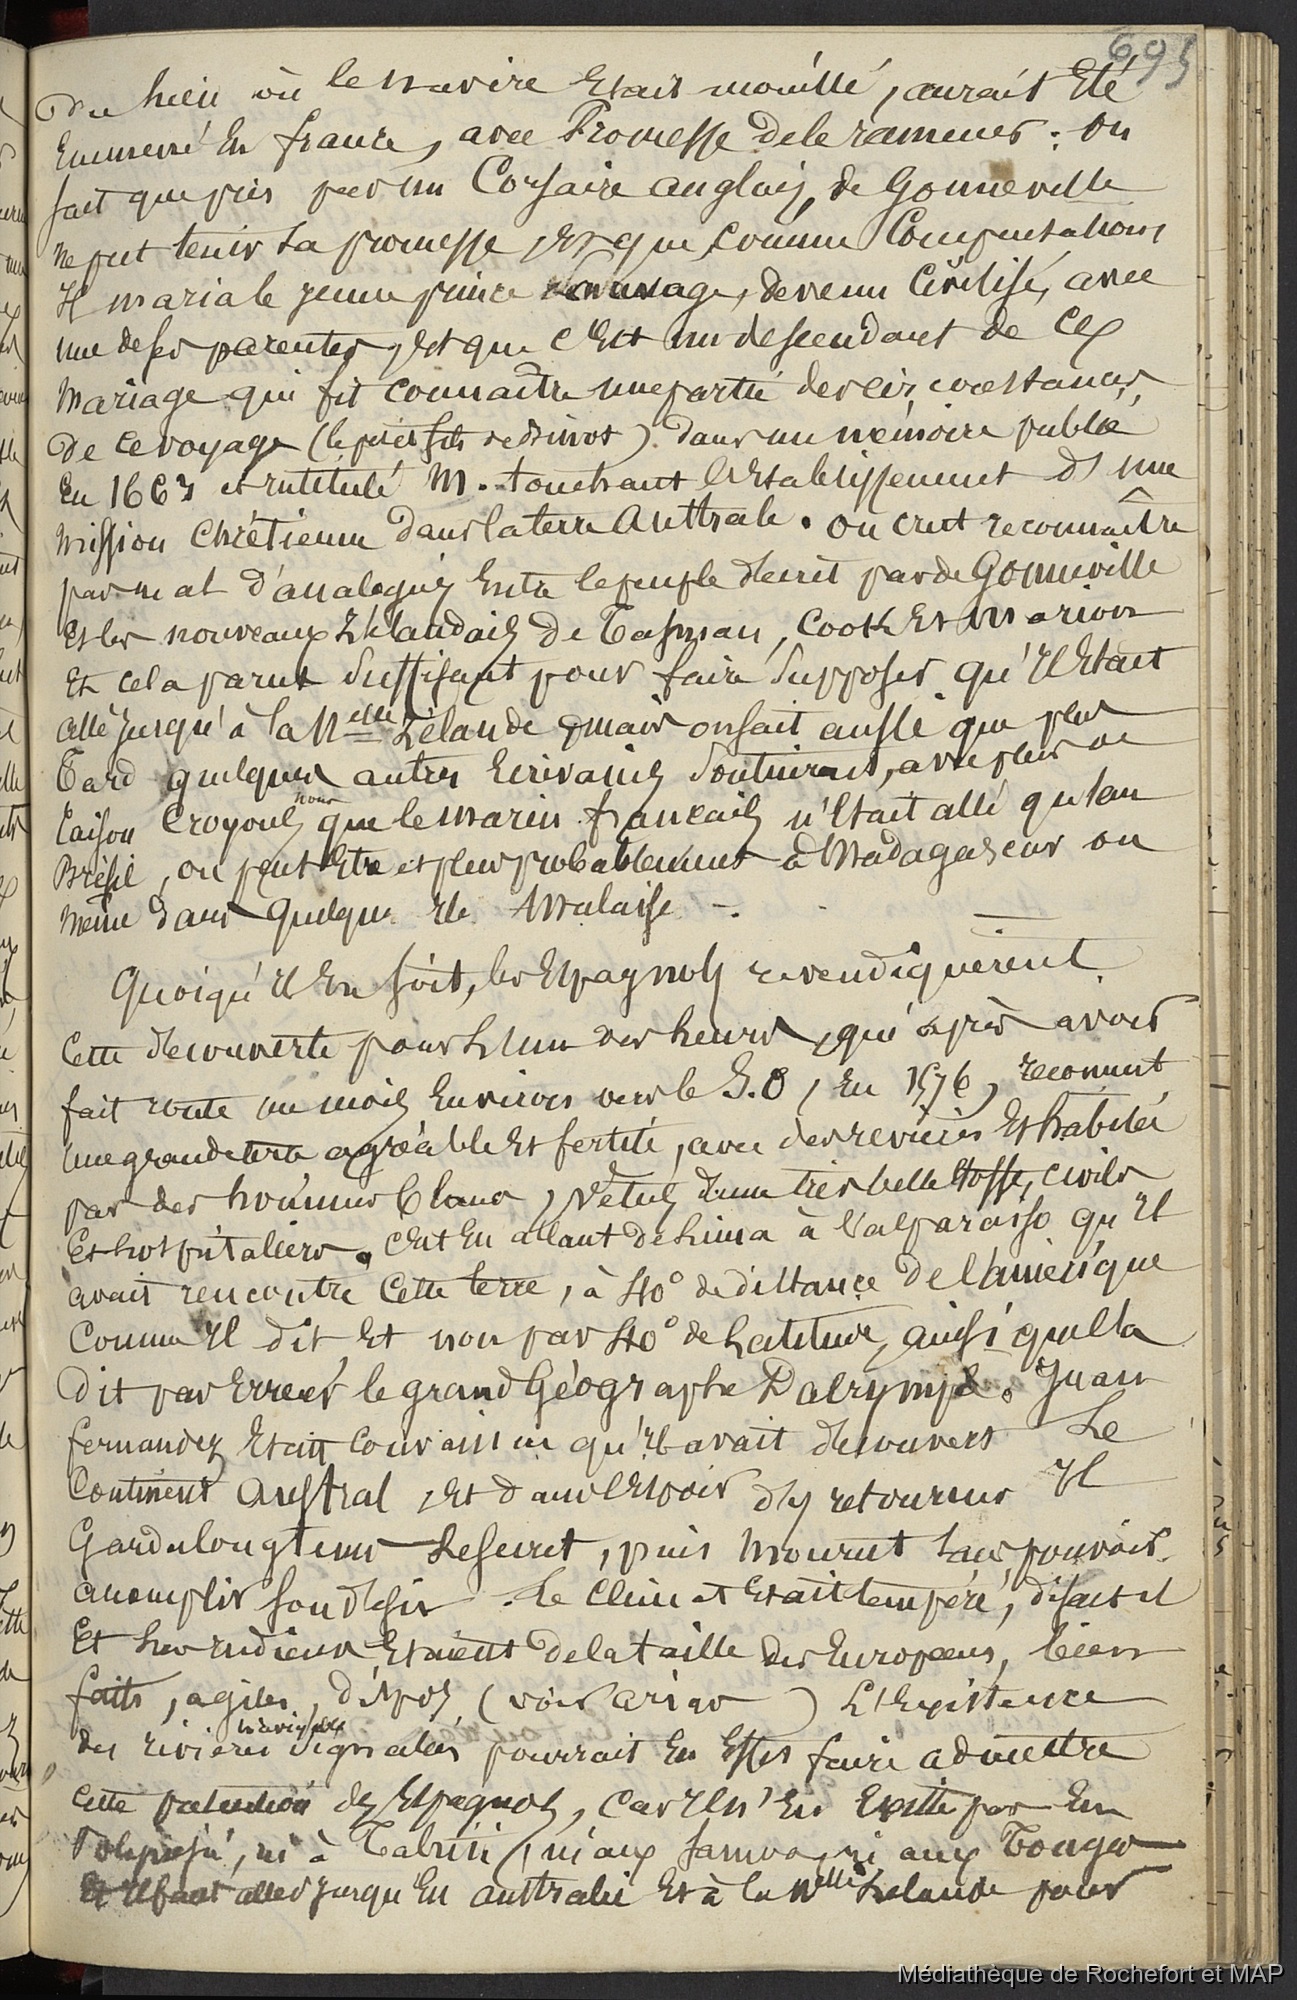 695
Du lieu où le navire était mouillé, aurait été
emmené en france, avec Promesse de le ramener : on
sait que pris par un Corsaire anglais, de Gonneville
ne put tenir sa promesse, et que comme Compensations
Il maria le jeune prince sauvage, devenu Civilisé, avec
une de ses parentes, et que c'est un descendant de ce
mariage qui fit connaître une partie des circonstances
De ce voyage (le petit fils Essomeric) dans un mémoire publié
en 1663 et intitulé M. touchant l'établissement d'une
mission chrétienne dans la terre Australe. on crut reconnaître
pas mal d'analogies entre le peuple décrit par de Gonneville
et les nouveaux Zélandais de Tasman, Cook et Marion
et cela parut suffisant pour faire supposer qu'il était
allé jusqu'à la Nelle Zélande ; mais on sait aussi que plus
Tard quelques autres Ecrivains soutinrent, avec plus de
raison croyons nous que le marin français n'était allé qu'au
Brésil, ou peut être et plus probablement à Madagascar ou
même dans quelque Ile Malaise -.
Quoiqu'il en soit, les Espagnols revendiquèrent
Cette découverte pour l'un des leurs, qui après avoir
fait route un mois environ vers le S.O, en 1576, reconnut
une grande terre agréable et fertile, avec des rivières et habitée
par des hommes blancs, vêtus d'une très belle étoffe, civils
et hospitaliers. C'est en allant de Lima à Valparaiso qu'il
avait rencontré cette terre, à 40° de distance de l'amérique
comme il dit et non par 40° de Latitude, ainsi que l'a
dit par erreur le grand Géographe Dalrymple. Juan
fernandez était convaincu qu'il avait découvert Le
Continent Austral, et dans l'espoir d'y retourner Il
Garda longtems le secret, puis mourut sans pouvoir
accomplir son désir. Le Climat était tempéré, disait il
et les indiens étaient de la taille des Européens, bien
faits, agiles, dispos, (voir arias ) L'existence
des rivières navigables signalées pourrait en effet faire admettre
cette prétention des Espagnols, car Il n'en existe pas en
Polynésie, ni à Tahiti, ni aux Samoa, ni aux Tonga
et Il faut aller jusqu'en australie et à la Nelle Zélande pour
Médiathèque de Rochefort et MAP